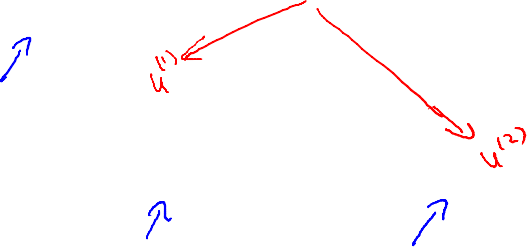 u^(1)
u^(2)